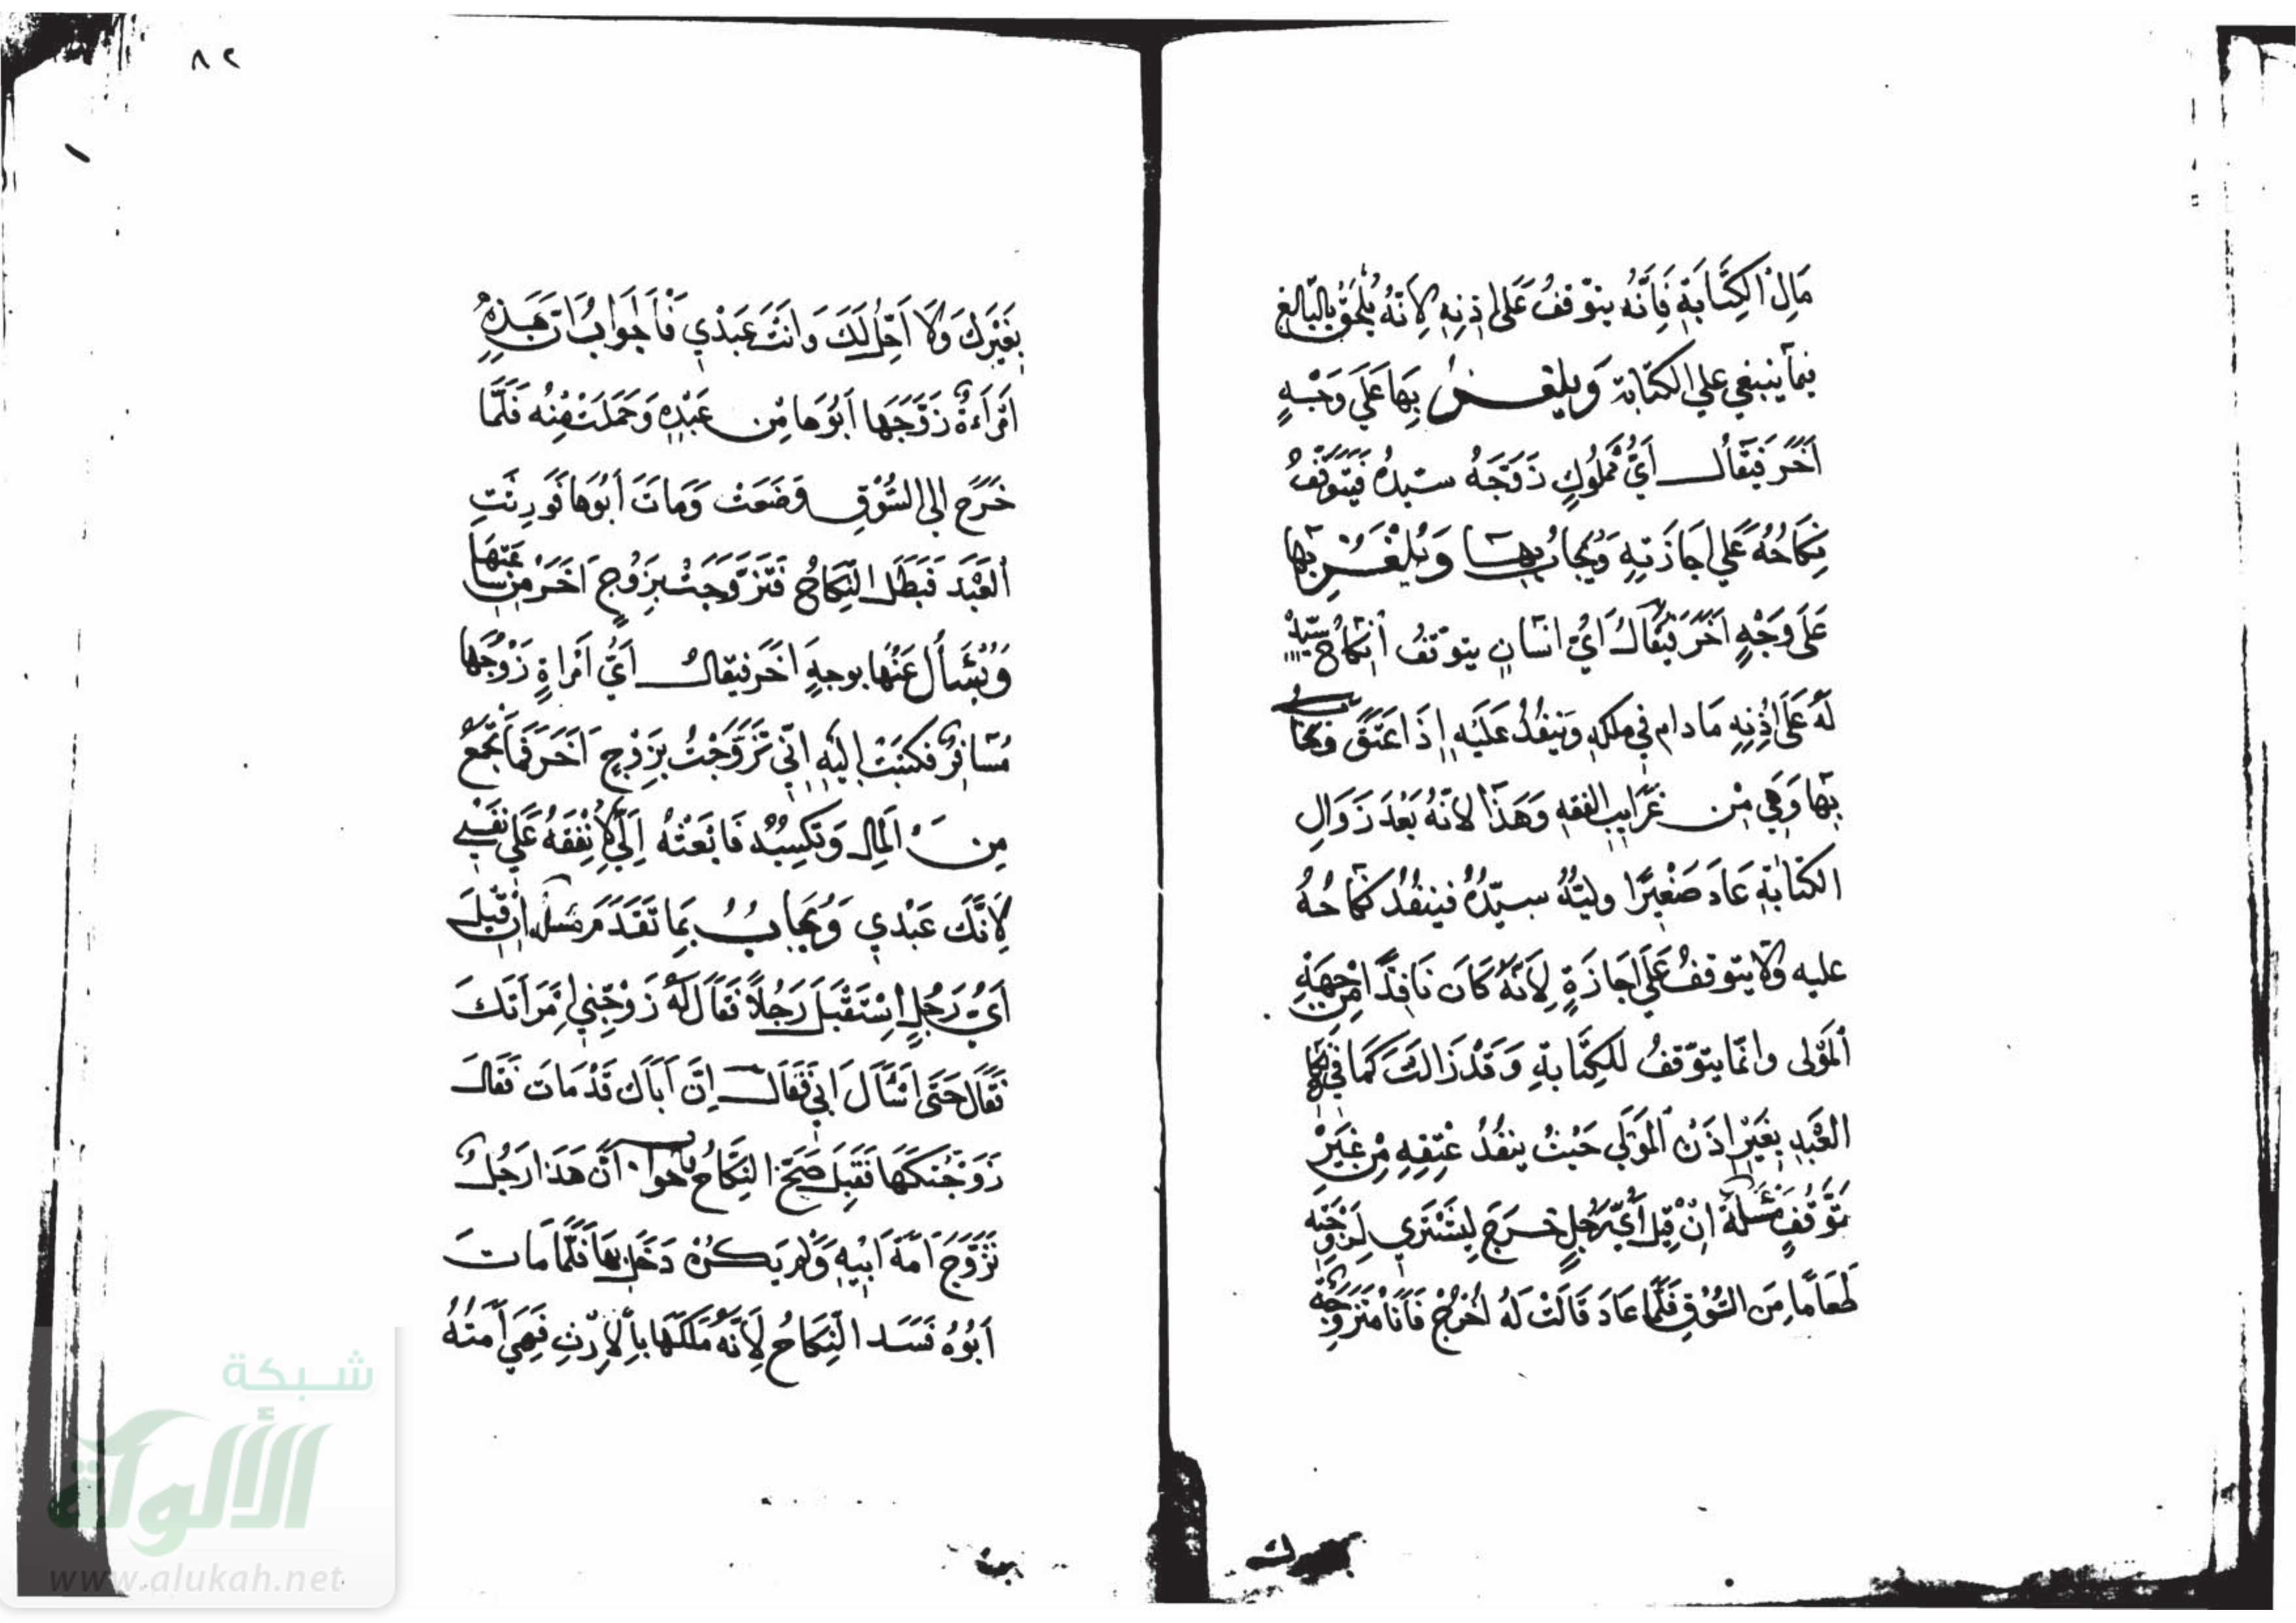 مَالِ الكِتَابَةِ فَانَّهُ يتوقفُ عَلى اذِنِهِ لِانَّهُ مُلحَقٌ بِالبَالِغِ
فيما ينبغي علي الكتابة وَيلغَزُ بِهَا عَلَي وَجْهٍ
اَخَرَ فَيُقَالُ اَيُّ مَمْلُوكٍ زَوَّجَهُ سَيّدُهُ فَيَتَوَقَّفُ
نِكَاحُهُ عَلي اِجَازَتِهِ وَيُجَابُ بِهَا وَيُلْغَزُ بِهَا
عَلَى وَجْهٍ اَخَرَ فَيُقَالُ اَيُّ انسَانٍ يتوَقّفُ انكاحُ سَيّدِهِ
لَهُ عَلَى اِذْنِهِ مَا دام في ملكهِ وَينفُدُ عَلَيْهِ اِذَا عَتَقَ وَيُجَابُ
بِهَا وَهِي مِن غَرَايبِ الفقهِ وَهَذَا لانَّهُ بَعْدَ زَوَالِ
الكتَابَةِ عَادَ صَغِيرًا وليُّهُ سيّدُهُ فينفُدُ نكَاحُهُ
عليه ولا يتوقفُ عَلَي اِجَازَةٍ لِاَنَّهُ كَانَ نَافِذًا مِن جهَةِ
المَوْلى وانمَا يتوَقفُ لِلكِتَابَةِ وَقَدْ زَالَتْ كَمَا في نِكَاحِ
العَبْدِ بِغَيْرِ اِذْنِ المَوْلَي حَيْثُ ينفُدُ عِتْقِهِ مِن غَيْرِ
تَوَقُّفٍ مَسْئَلَة اِنْ قِيلَ اَيُّ رَجُلٍ خَرَجَ لِيَشْتَرِي لِزَوْجَتِهِ
طَعَامًا مِنَ السُّوْقِ فَلَمَّا عَادَ قَالَتْ لَهُ اُخْرُجْ فَاَنَا مُتَزَوِّجَة
٨٢
بِغَيْرِكَ وَلَا اَحِلُّ لَكَ وَانْتَ عَبْدِي فَالجَوَابُ انَّ هَذِهِ
امْرَاَةٌ زَوَّجَهَا اَبُوْهَا مِن عَبْدِهِ وَحَمَلَتْ مِنْهُ فَلَمَّا
خَرَجَ الى السُّوْقِ وَضَعَتْ وَمَاتَ اَبُوهَا فَوَرِثَتِ
العَبْدَ فَبَطَلَ النِّكَاحُ فَتَزَوَّجَتْ بِزَوْجٍ اَخَرَ مِن سَاعَتِهَا
وَيُسْأَلُ عَنْهَا بوجهٍ اَخَرَ فيقالُ اَيُّ امْرَاةٍ زَوْجُهَا
مُسَافِرٌ فكتبَتْ اِليْهِ اِنِّي تَزَوَّجْتُ بِزَوْجٍ اَخَرَ فَمَا تَجْمَعُ
مِنَ المَالِ وَتَكْسِبُهُ فَابْعَثْهُ اِلَيَّ لِاُنْفِقَهُ عَلَي نَفْسِي
لِاَنَّكَ عَبْدِي وَيُجَابُ بِمَا تَقَدَمَ مَسئلَة اِنْ قِيلَ
اَيُّ رَجُلٍ اِسْتَقْبَلَ رَجُلًا فَقَالَ لَهُ زَوِّجْنِي اِمْرَاَتَكَ
فَقَالَ حَتَى اَسْأَلَ اَبِي فَقَالَ اِنَّ اَبَاكَ قَدْ مَاتَ فَقَالَ
زَوَّجْتُكَهَا فَقَبِلَ صَحَّ النِكَاحُ فَالجَوابُ اَنَّ هَذَا رَجُلٌ
تَزَوَّجَ اَمَةَ اَبِيْهِ وَلَمْ يَكُنْ دَخَلَ بِهَا فَلَمَّا مَاتَ
اَبُوْهُ فَسَدَ النِّكَاحُ لِاَنَّهُ مَلَكَهَا بِالاِرْثِ فَهِيَ اَمَتُهُ
شبكة
الألوكة
www.alukah.net